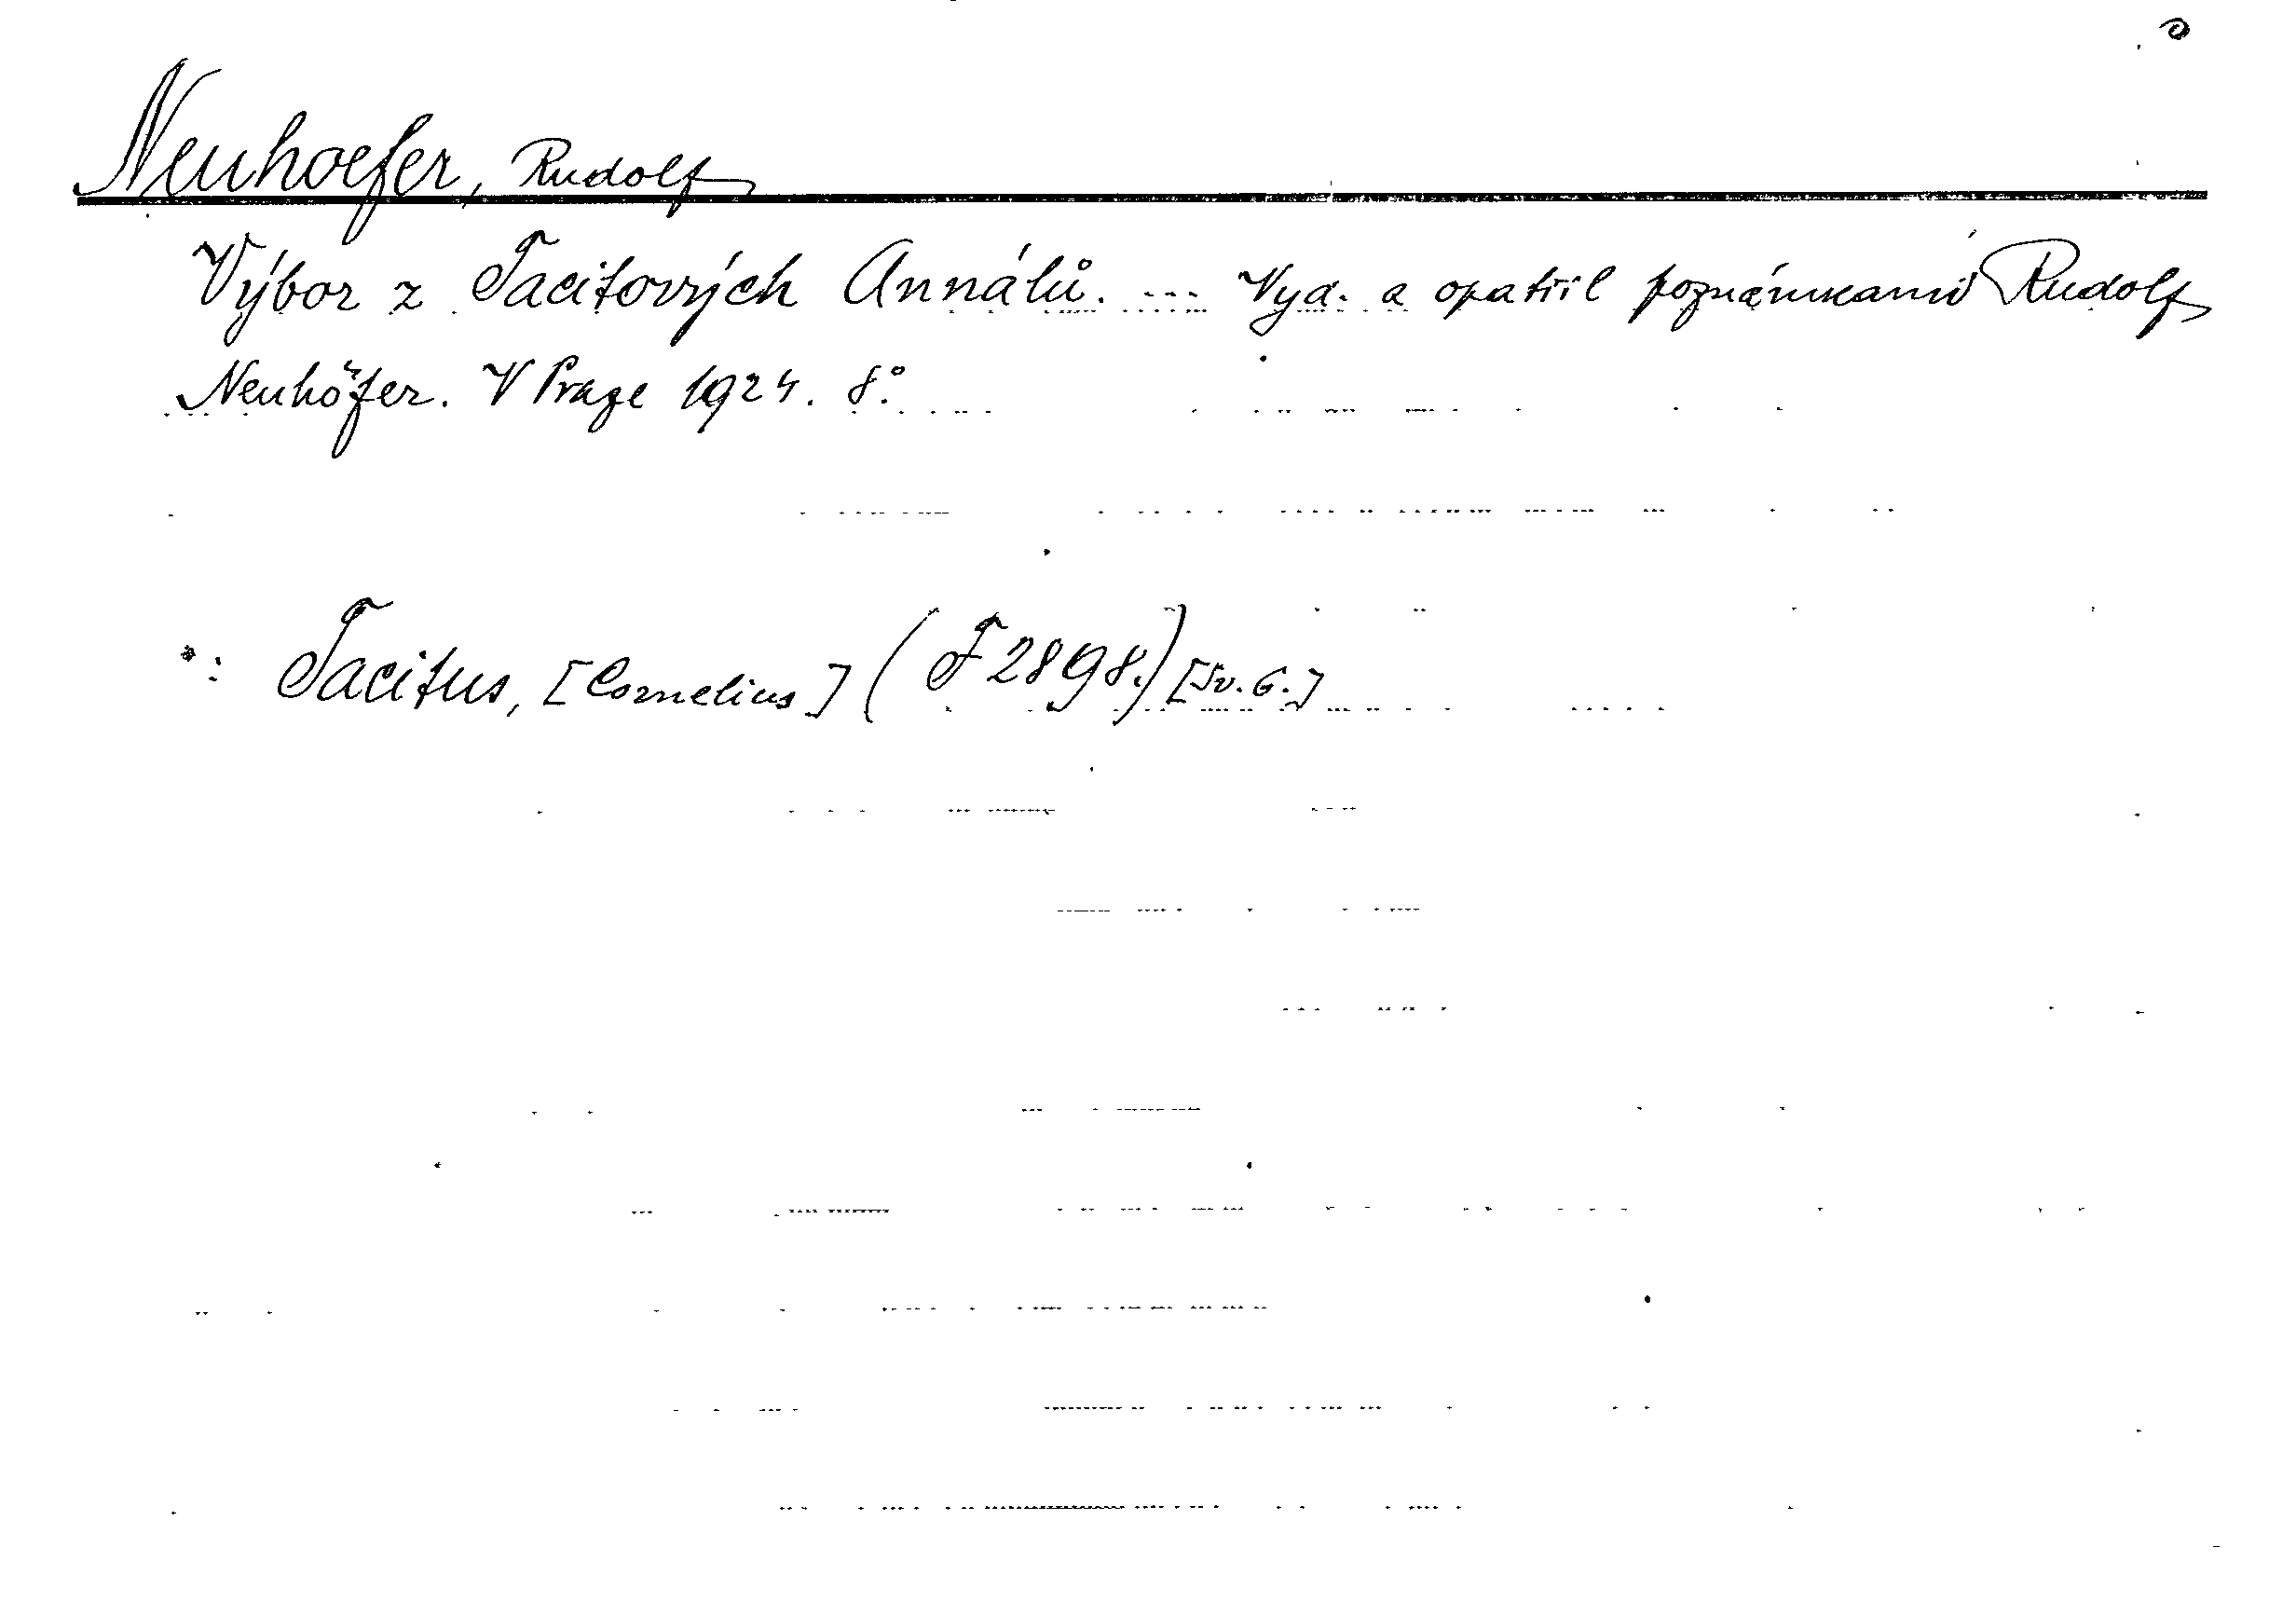 Neuhoefer, Rudolf
Výbor z Tacitových Annálů. ... Vyd. a opatřil poznámkami Rudolf
Neuhöfer. V Praze 1924. 8°.
*: Tacitus, [Cornelius] (F 2898.) [Sv. 6.]